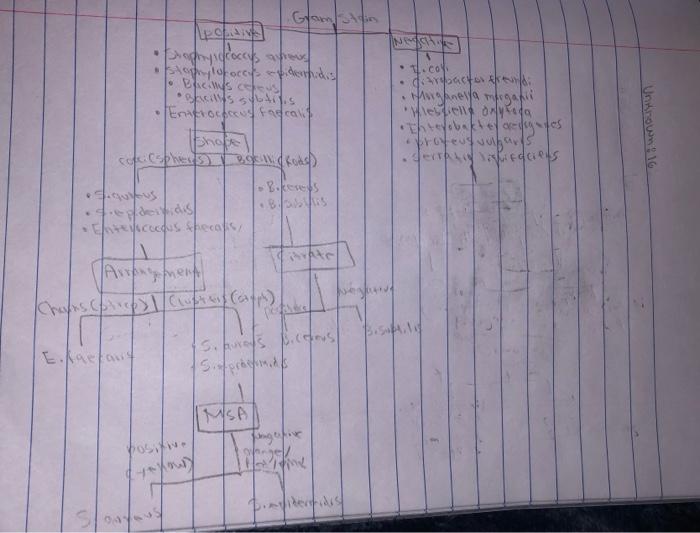 Gram Stain
positive
Negative
• Staphylococcus aureus
• Staphylococcus epidermidis
• Bacillus cereus
• Bacillus subtilis
• Enterococcus faecalis
• E. coli
• Citrobacter freundi
• Morganella morganii
• Klebsiella oxytoca
• Enterobacter aerogenes
• proteus vulgaris
• Serratia liquifaciens
Unknown: 16
Shape
cocci (spheres)
Bacilli (Rods)
• S. aureus
• S. epidermidis
• Enterococcus faecalis
• B. cereus
• B. subtilis
Arrangement
Citrate
Chains (strep)
Clusters (staph)
positive
Negative
E. faecalis
• S. aureus
• S. epidermidis
B. cereus
B. subtilis
MSA
positive
(yellow)
Negative
orange/
S. aureus
S. epidermidis